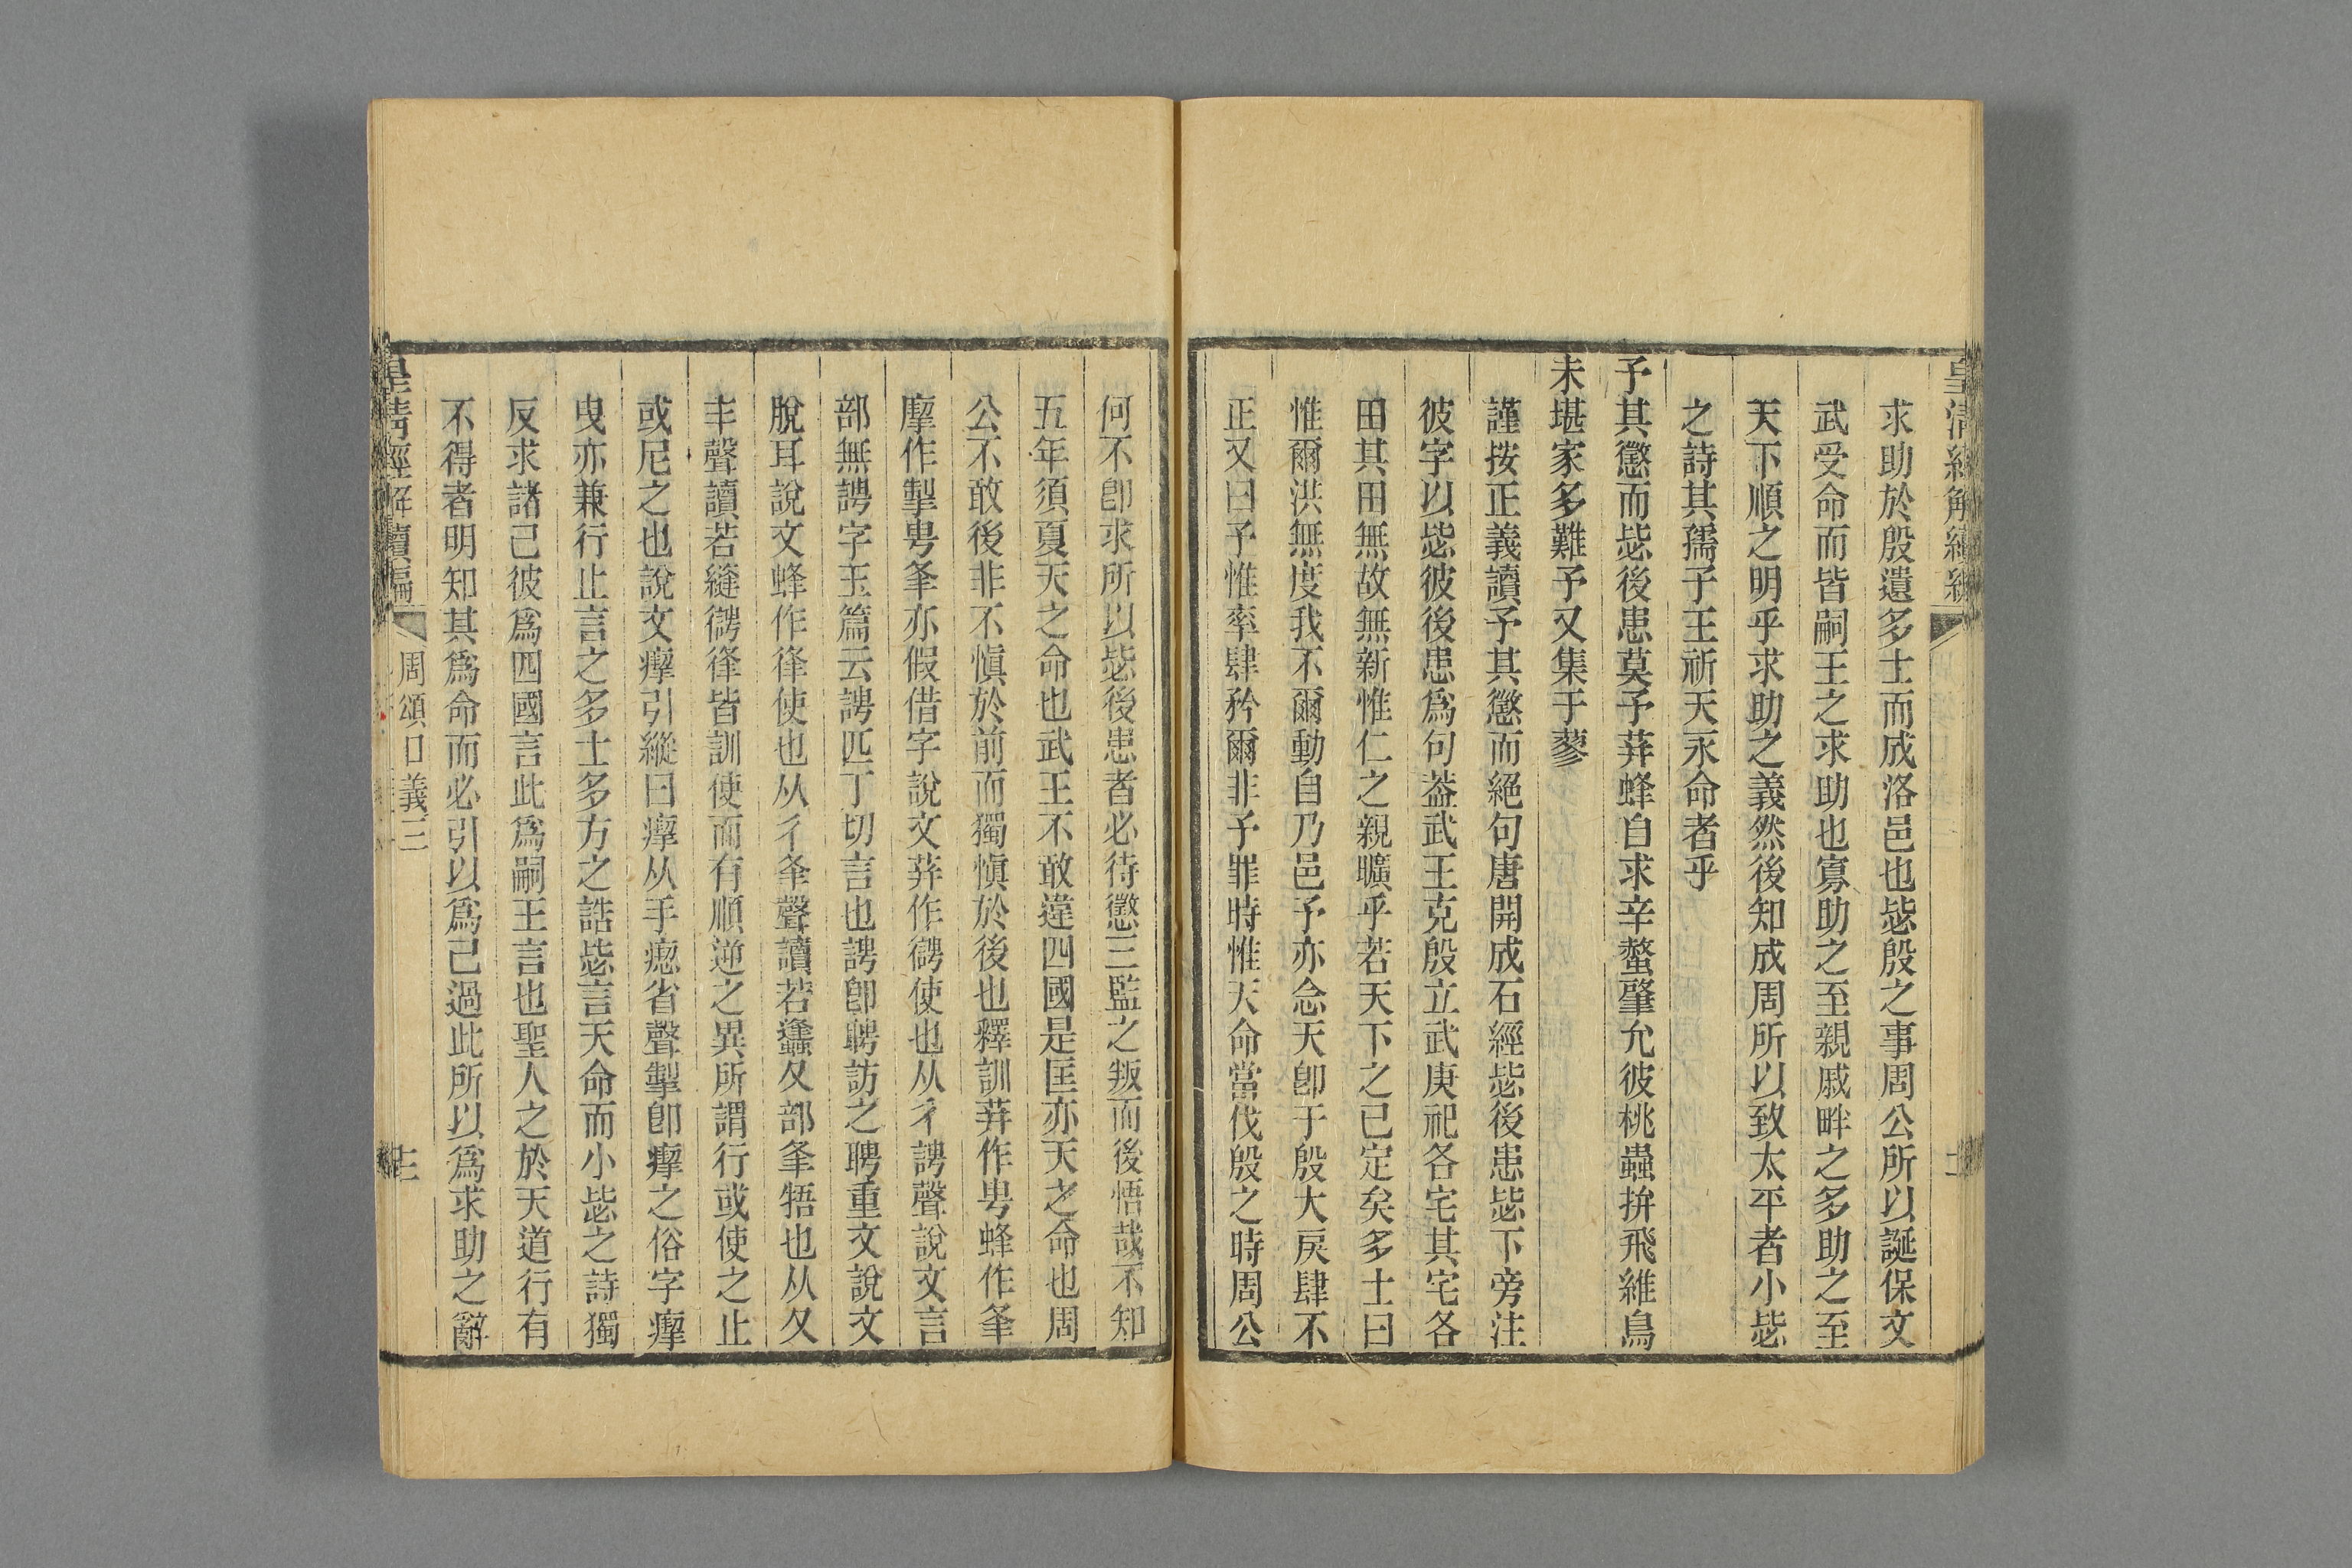 皇清經解續編
求助於殷遺多士而成洛邑也毖殷之事周公所以誕保文
武受命而皆嗣王之求助也寡助之至親戚畔之多助之至
天下順之明乎求助之義然後知成周所以致太平者小毖
之詩其孺子王祈天永命者乎
予其懲而毖後患莫予荓蜂自求辛螫肇允彼桃蟲拚飛維鳥
未堪家多難予又集于蓼
謹按正義讀予其懲而絕句唐開成石經毖後患毖下旁注
彼字以毖彼後患爲句葢武王克殷立武庚祀各宅其宅各
田其田無故無新惟仁之親曠乎若天下之已定矣多士曰
惟爾洪無度我不爾動自乃邑予亦念天卽于殷大戾肆不
正又曰予惟率肆矜爾非予罪時惟天命當伐殷之時周公
何不卽求所以毖後患者必待懲三監之叛而後悟哉不知
五年須夏天之命也武王不敢違四國是匡亦天之命也周
公不敢後非不愼於前而獨愼於後也釋訓荓作甹蜂作夆
摩作掣甹夆亦假借字說文荓作德使也从彳諤聲說文言
部無諤字玉篇云諤匹丁切言也諤卽聘訪之聘重文說文
脫耳說文蜂作徍使也从彳夆聲讀若蠭夂部夆啎也从夂
丰聲讀若縫德徍皆訓使而有順逆之異所謂行或使之止
或尼之也說文瘳引縱曰瘳从手瘛省聲掣卽瘳之俗字瘳
曳亦兼行止言之多士多方之誥毖言天命而小毖之詩獨
反求諸己彼爲四國言此爲嗣王言也聖人之於天道行有
不得者明知其爲命而必引以爲己過此所以爲求助之辭
皇清經解續編
周頌口義三